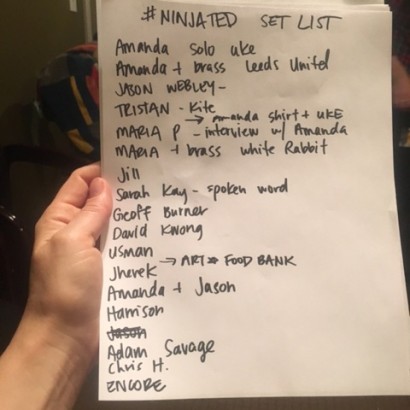 #NINJATED SET LIST
Amanda solo uke
Amanda + brass Leeds United
JASON WEBLEY -
TRISTAN - Kite
→ Amanda shirt + UKE
MARIA P - interview w/ Amanda
MARIA + brass white Rabbit
Jill
Sarah Kay - spoken word
Geoff Burner
David Kwong
Usman
Jherek → ART FOOD BANK
Amanda + Jason
Harrison
Jason
Adam Savage
Chris H.
ENCORE